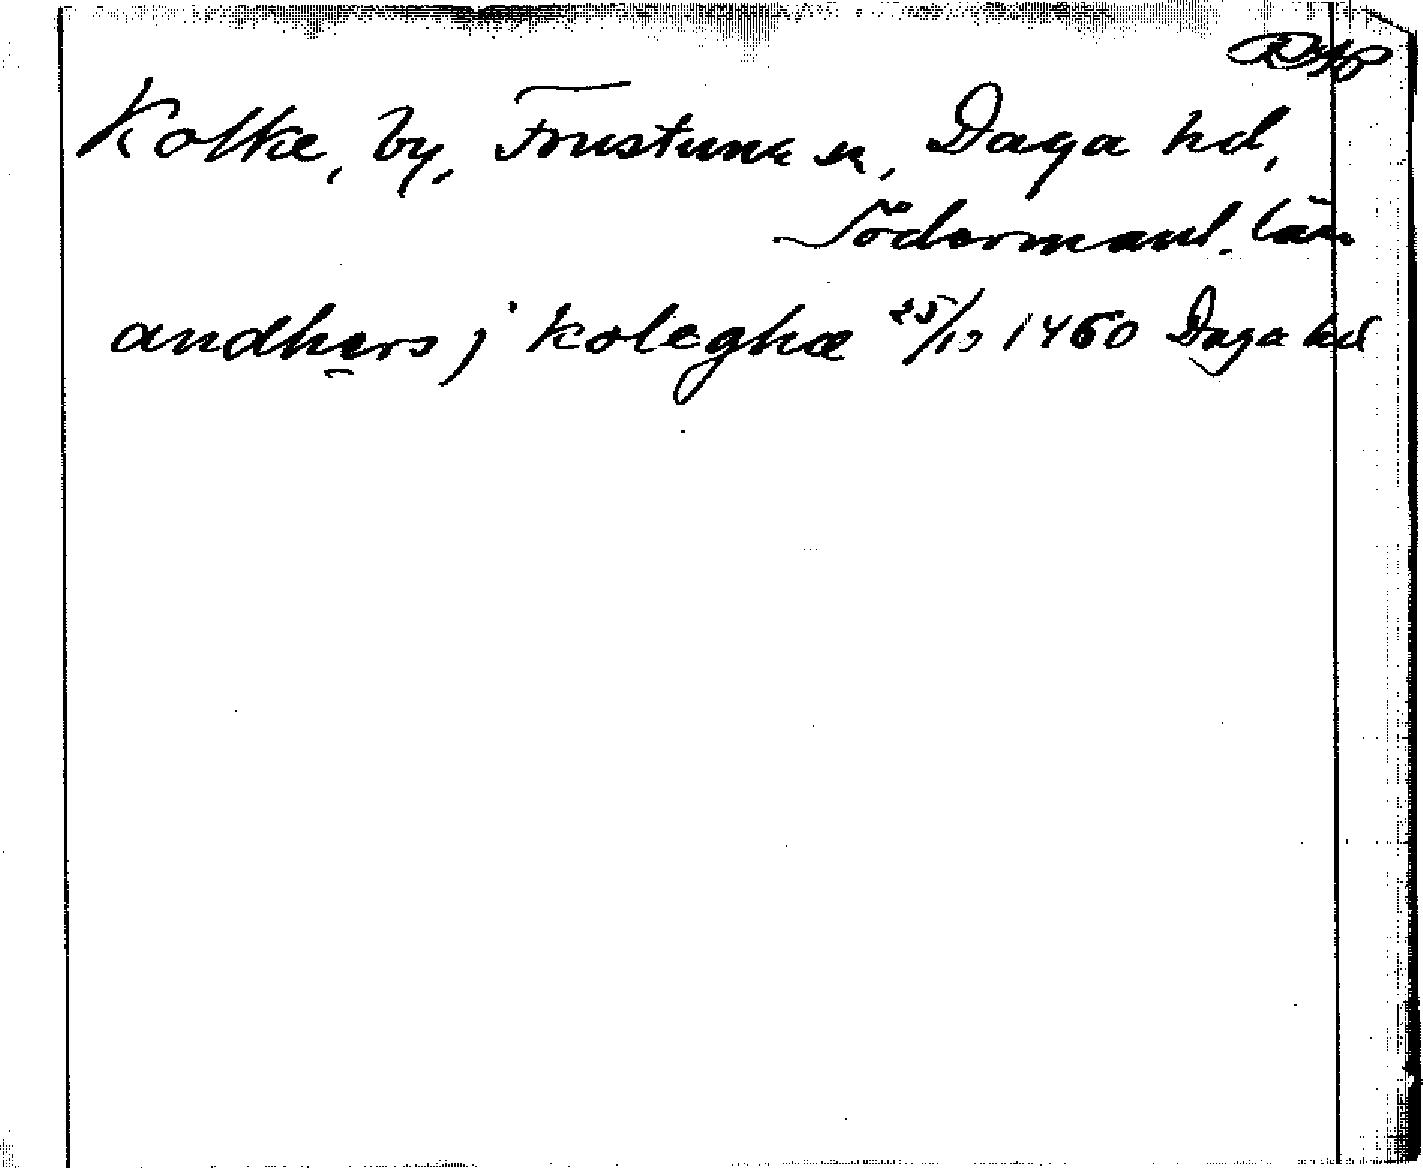 Kolke, by, Frustuna sn, Daga hd,
Södermanl. län
andhers j koleghæ 25/10 1460 Daga hd